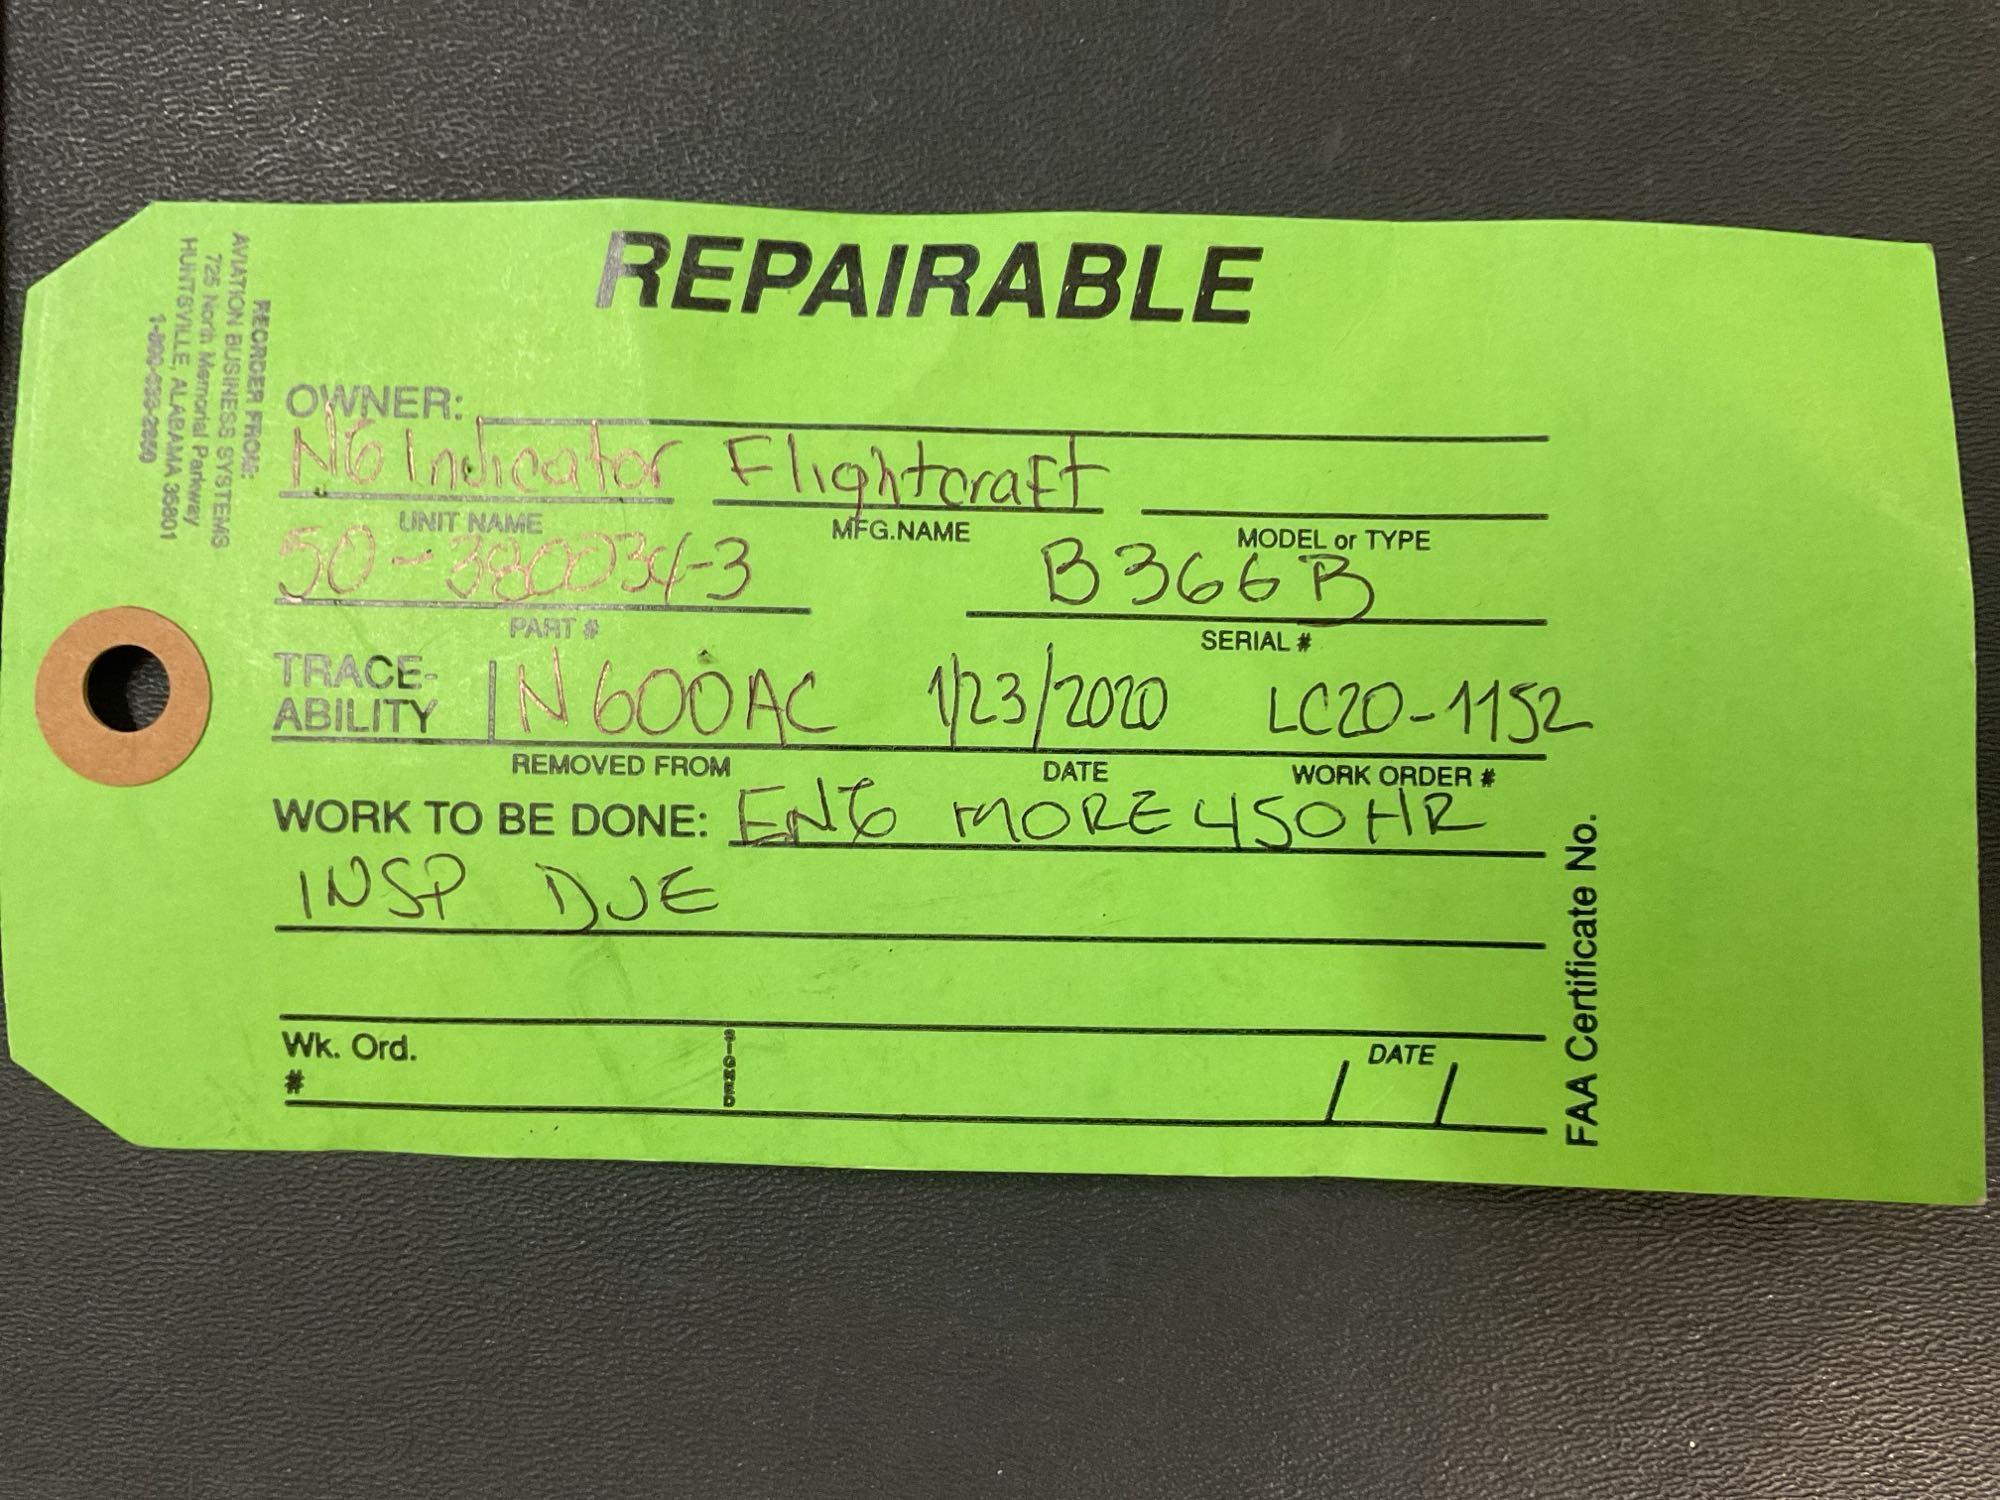 REPAIRABLE
REORDER FROM:
AVIATION BUSINESS SYSTEMS
725 North Memorial Parkway
HUNTSVILLE, ALABAMA 35801
OWNER:
NG Indicator Flightcraft
UNIT NAME MFG.NAME MODEL or TYPE
50-380034-3 B366B
PART # SERIAL #
TRACE-
ABILITY N600AC 1/23/2020 LC20-1152
REMOVED FROM DATE WORK ORDER #
WORK TO BE DONE: ENG MORE 450HR
INSP DUE
Wk. Ord.
# SIGNED DATE / /
FAA Certificate No.